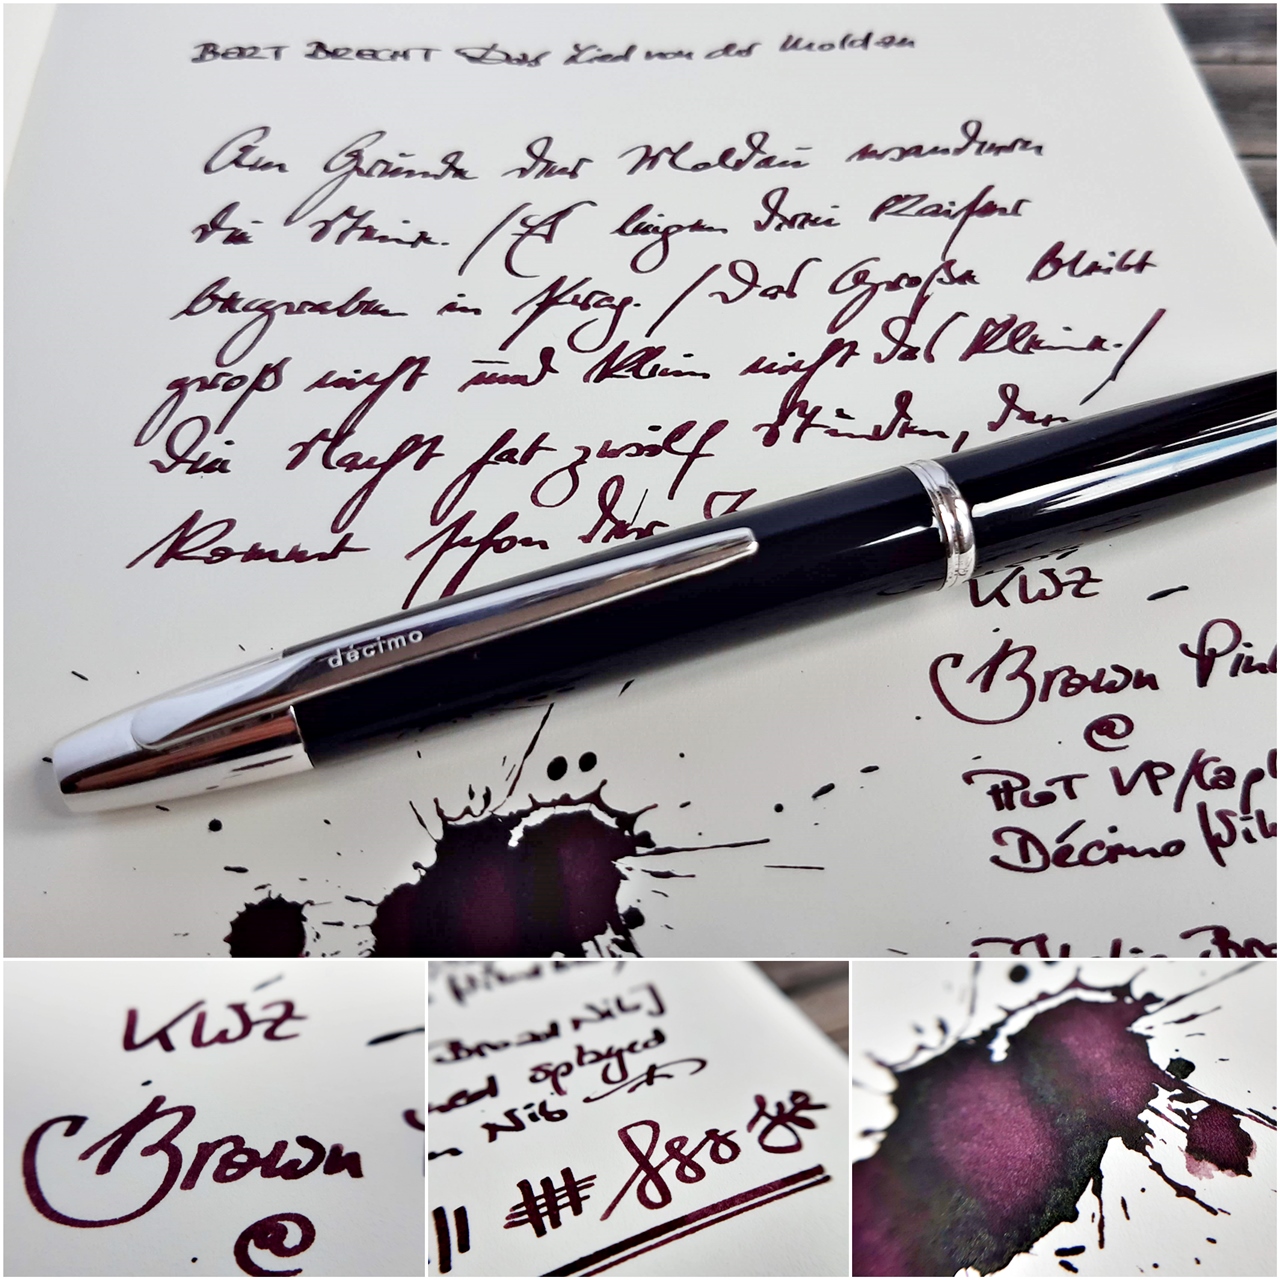 BERT BRECHT Das Lied von der Moldau
Am Grunde der Moldau wandern
die Steine. / Es liegen drei Kaiser
begraben in Prag. / Das Große bleibt
groß nicht und klein nicht das Kleine. /
Die Nacht hat zwölf Stunden, dann
kommt schon der
décimo
KWZ -
Brown Pink
@
PILOT VP/Cap
Décimo
KWZ
Brown
@
Broad Nib]
splayed
Nib